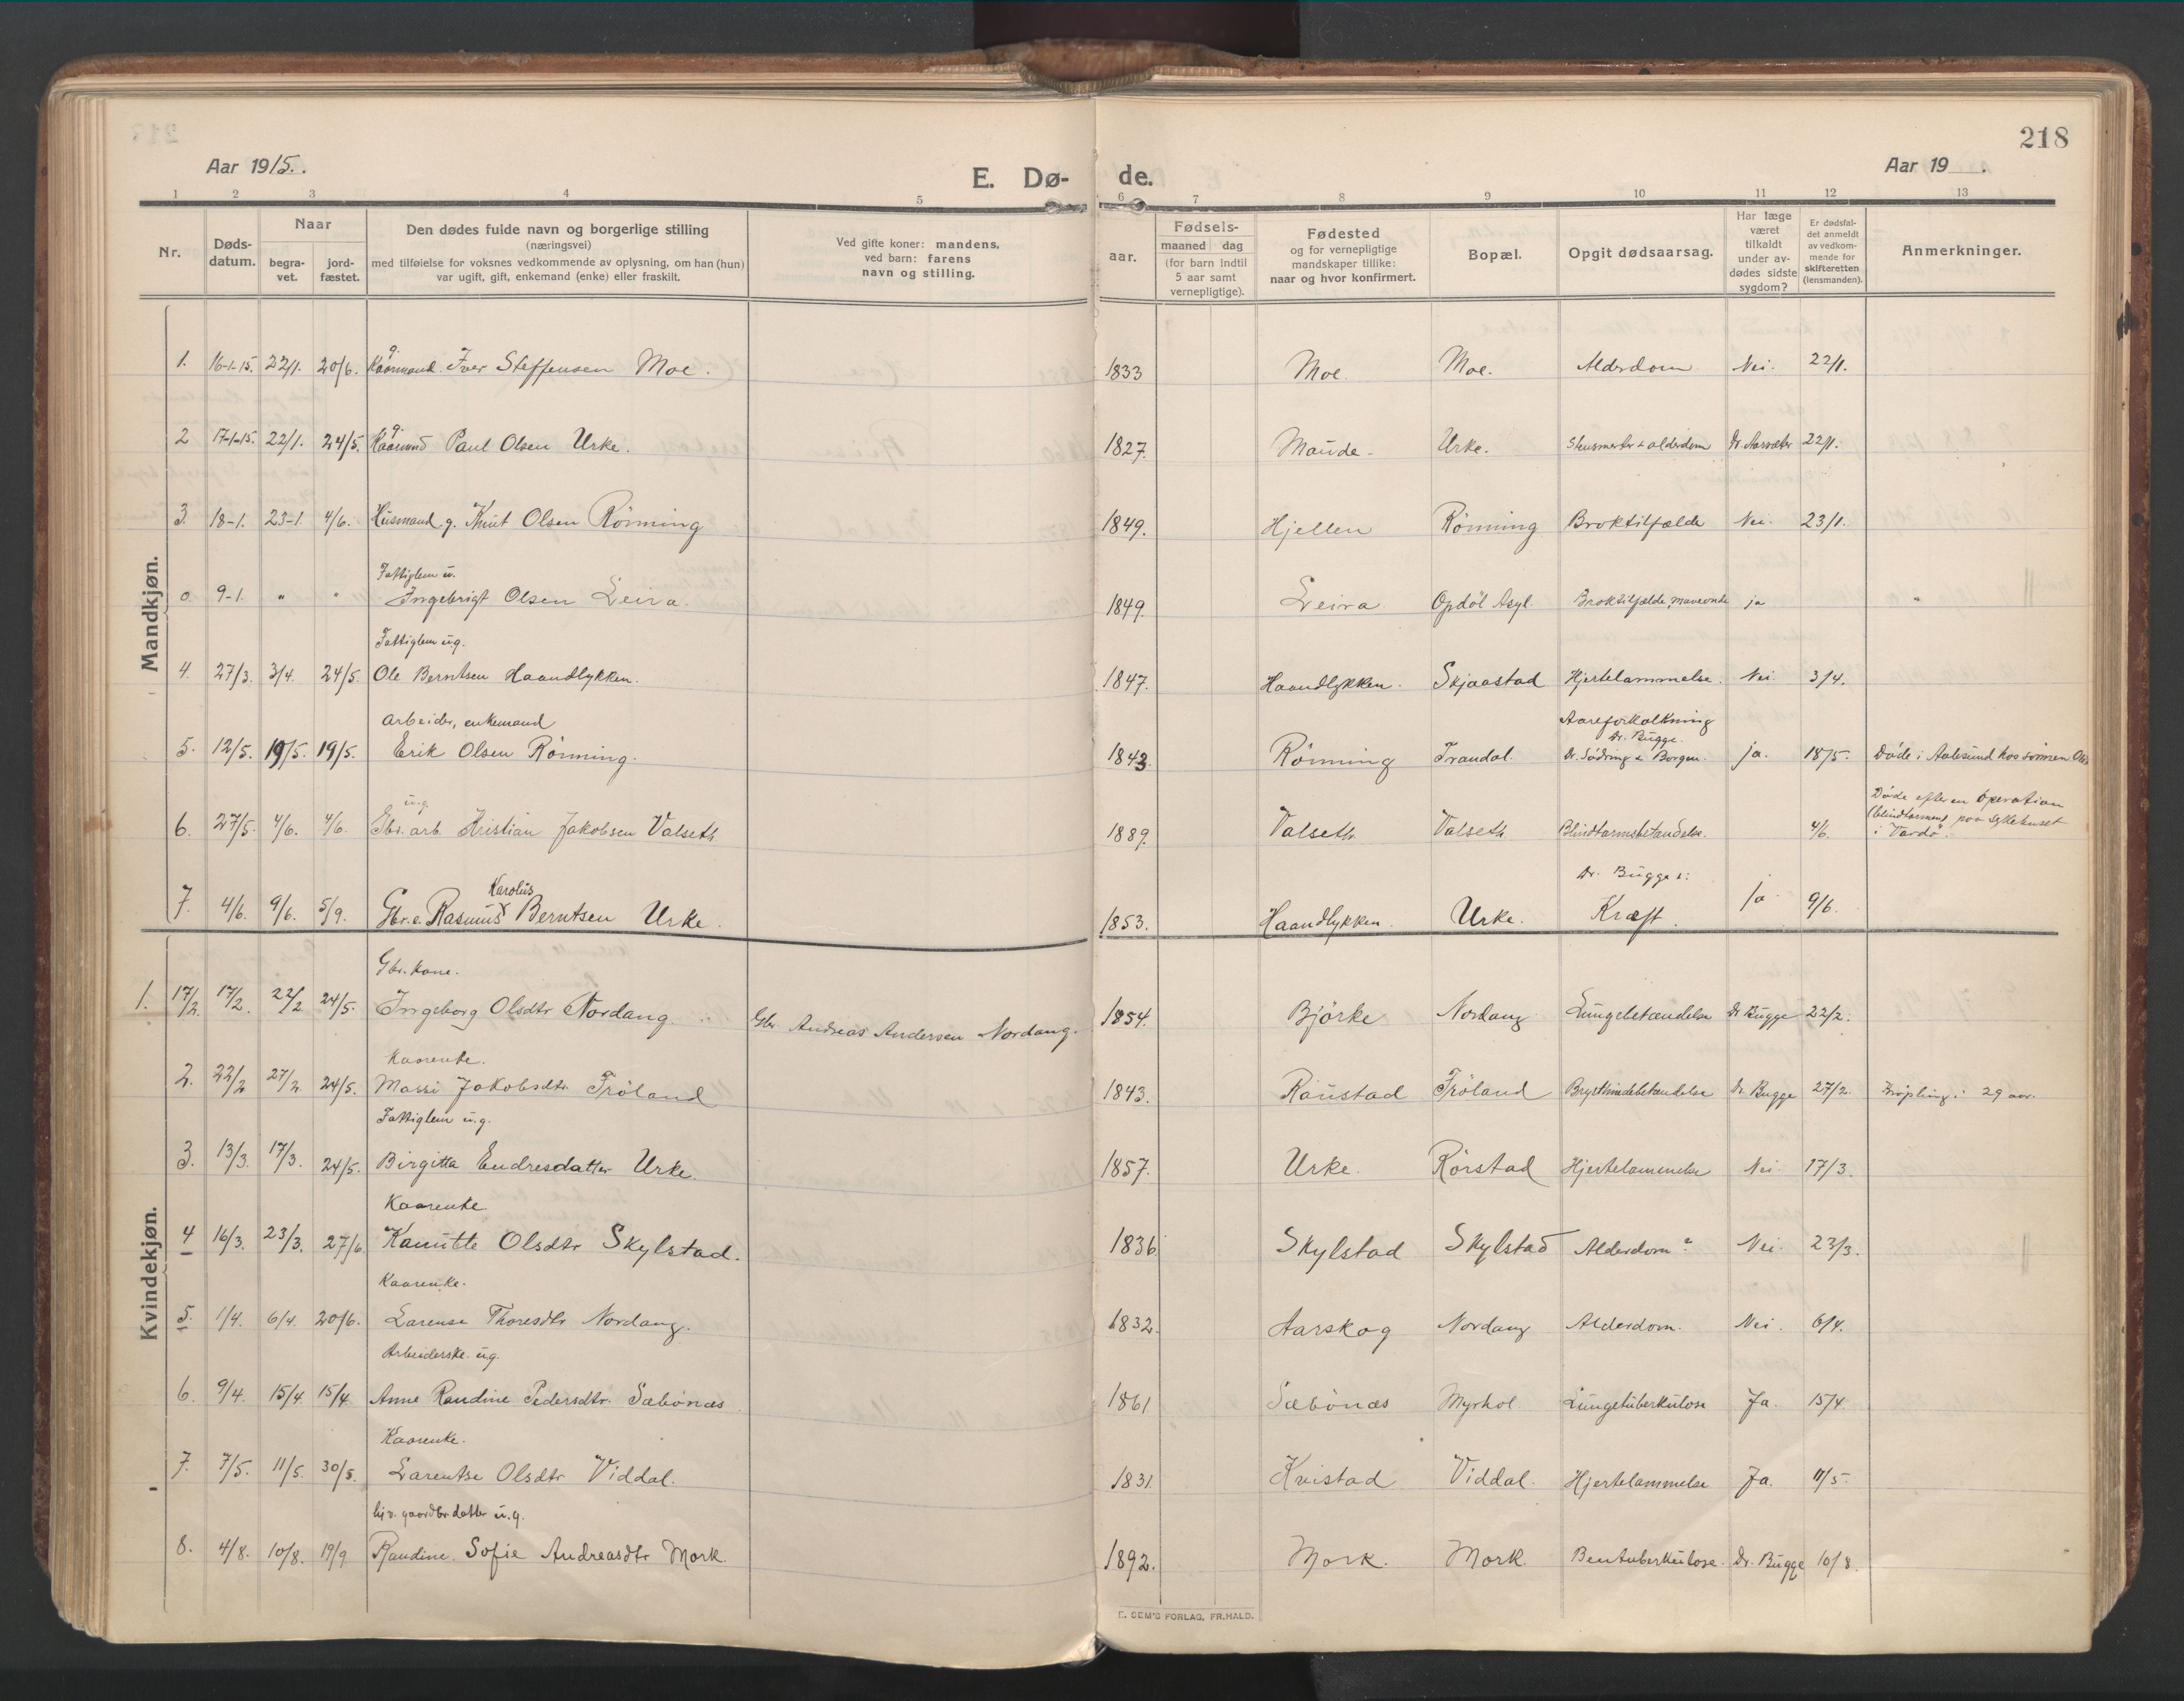 218
Aar 1915.
E. Dø-
de.
Aar 19 .
1 2 3 4 5 6 7 8 9 10 11 12 13
Nr.
Døds-
datum.
Naar
begra-
vet.
jord-
fæstet.
Den dødes fulde navn og borgerlige stilling
(næringsvei)
med tilføielse for voksnes vedkommende av oplysning, om han (hun)
var ugift, gift, enkemand (enke) eller fraskilt.
Ved gifte koner: mandens,
ved barn: farens
navn og stilling.
aar.
Fødsels-
maaned dag
(for barn indtil
5 aar samt
vernepligtige).
Fødested
og for vernepligtige
mandskaper tillike:
naar og hvor konfirmert.
Bopæl.
Opgit dødsaarsag.
Har læge
været
tilkaldt
under av-
dødes sidste
sygdom?
Er dødsfal-
det anmeldt
av vedkom-
mende for
skifteretten
(lensmanden).
Anmerkninger.
Mandkjøn.
g.
1. 16-1-15. 22/1. 20/6. Kaarmand. Iver Steffensen Moe. 1833 Moe. Moe. Alderdom Nei. 22/1.
g.
2 17-1-15. 22/1. 24/5. Kaarmand Paul Olsen Urke. 1827. Maude. Urke. alderdom 22/1.
3. 18-1. 23-1. 4/6. Husmand. g. Knut Olsen Rönning 1849. Hjellen Rönning Broktilfælde Nei. 23/1.
Fattiglem u.
0. 9-1. " " Ingebrigt Olsen Leira. 1849. Leira. Opdöl Asyl. Broktilfælde, maveonde ja "
Fattiglem u.g.
4. 27/3. 3/4. 24/5. Ole Berntsen Haandlykken. 1847. Haandlykken. Skjaastad Hjertelammelse. Nei. 3/4.
Arbeider, enkemand
Aareforkalkning
Dr. Bugge.
5. 12/5. 19/5. 19/5. Erik Olsen Rönning. 1843. Rönning Trandal. Dr. Södring & Borgen. ja. 18/5. Döde i Aalesund hos sönnen
u.g.
Döde efter en operation
(blindtarmen) paa sykehuset
i "Vardö".
6. 27/5. 4/6. 4/6. Gbr. arb. Kristian Jakobsen Valseth 1889. Valseth Valseth Blindtarmsbetændelse. 4/6.
Karolus
Dr. Bugge:
7. 4/6. 9/6. 5/9. Gbr. e. Rasmus Berntsen Urke. 1853. Haandlykken. Urke. Kræft. ja 9/6.
Kvindekjøn.
Gbr. kone.
1. 17/2. 17/2. 22/2 24/5. Ingeborg Olsdtr Nordang. Gbr. Andreas Andersen Nordang. 1854. Björke Nordang Lungebetændelse Dr Bugge 22/2.
Kaarenke.
2. 22/2 27/2. 24/5. Massi Jakobsdtr. Tröland 1843. Raustad Tröland Brysthindebetændelse Dr. Bugge 27/2. Kröpling i 29 aar.
Fattiglem u.g.
3. 13/3. 17/3. 24/5. Birgitta Endresdatter Urke. 1857. Urke. Rörstad Hjertelammelse Nei. 17/3.
Kaarenke
4 16/3. 23/3. 27/6. Kanutte Olsdtr Skylstad. 1836 Skylstad Skylstad Alderdom? Nei. 23/3.
Kaarenke.
5. 1/4. 6/4. 20/6. Larense Thoresdtr Nordang. 1832. Aarskog Nordang Alderdom. Nei. 6/4.
Arbeiderske. u.g.
6. 9/4. 15/4 15/4 Anne Randine Pedersdtr. Sæbönæs 1861 Sæbönæs Myrhol Lungetuberkulose Ja. 15/4.
Kaarenke.
7. 7/5. 11/5. 30/5. Larentse Olsdtr Viddal. 1831. Kvistad Viddal. Hjertelammelse Ja. 11/5.
hjv. gaardbr. datter u.g.
8. 4/8. 10/8. 19/9 Randine Sofie Andreasdtr Mork. 1892. Mork. Mork. Bentuberkulose. Dr. Bugge 10/8.
E. SEM'S FORLAG, FR.HALD.